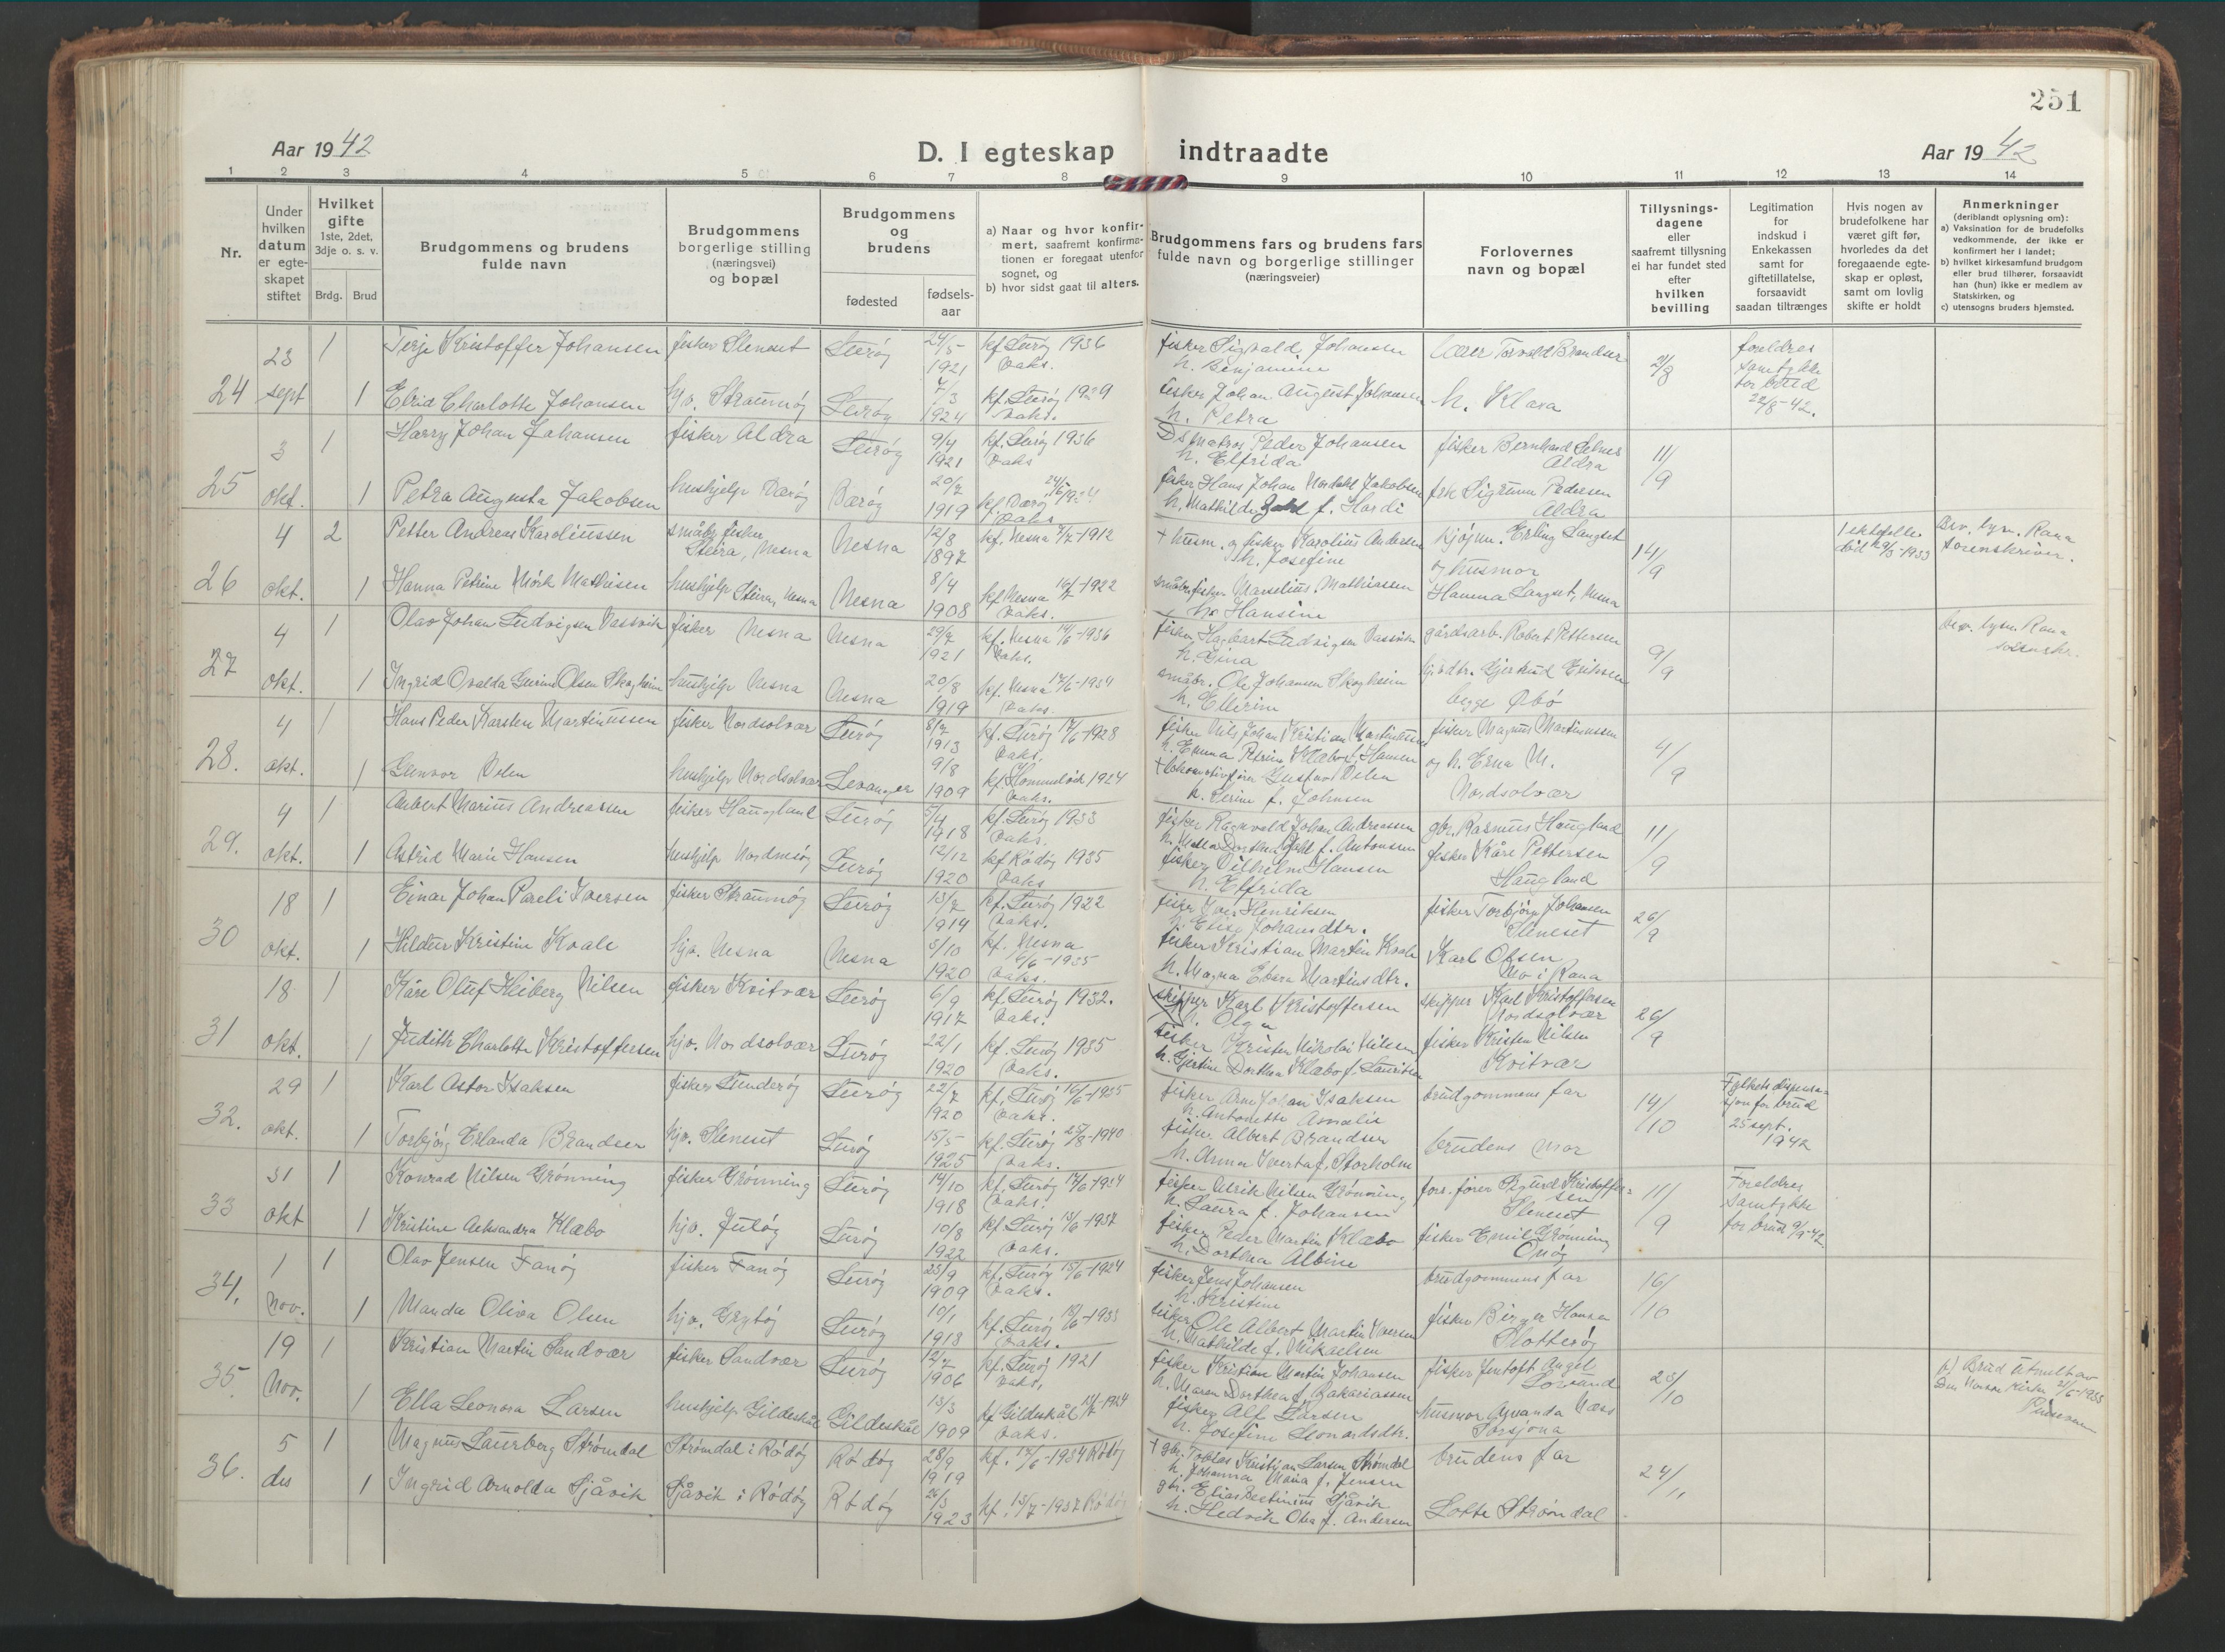 251
Aar 1942
D. I egteskap indtraadte
Aar 1942
1 2 3 4 5 6 7 8 9 10 11 12 13 14
Nr.
Under hvilken datum er egteskapet stiftet
Hvilket gifte
1ste, 2det, 3dje o. s. v.
Brdg. Brud
Brudgommens og brudens fulde navn
Brudgommens borgerlige stilling (næringsvei) og bopæl
Brudgommens og brudens
fødested
fødselsaar
a) Naar og hvor konfirmert, saafremt konfirmationen er foregaat utenfor sognet, og
b) hvor sidst gaat til alters.
Brudgommens fars og brudens fars fulde navn og borgerlige stillinger (næringsveier)
Forlovernes navn og bopæl
Tillysningsdagene eller saafremt tillysning ei har fundet sted efter hvilken bevilling
Legitimation for indskud i Enkekassen samt for giftetillatelse, forsaavidt saadan tiltrænges
Hvis nogen av brudefolkene har været gift før, hvorledes da det foregaaende egteskap er opløst, samt om lovlig skifte er holdt
Anmerkninger
(deriblandt oplysning om):
a) Vaksination for de brudefolks vedkommende, der ikke er konfirmert her i landet;
b) hvilket kirkesamfund brudgom eller brud tilhører, forsaavidt han (hun) ikke er medlem av Statskirken, og
c) utensogns bruders hjemsted.
24 23 sept 1 Terje Kristoffer Johansen fisker Sleneset Lurøy 24/5 1921 kf. Lurøy 1936 vaks. fisker Sigvald Johansen h. Benjamine Torvald Brandser 2/8 foreldres samtykke for brud 22/8-42.
1 Elrid Charlotte Johansen hjv. Straumøy Lurøy 7/3 1924 kf. Lurøy 1929 vaks. fisker Johan August Johansen h. Petra h. Klara
25 3 okt. 1 Harry Johan Johansen fisker Aldra Lurøy 9/4 1921 kf. Lurøy 1936 vaks Peder Johansen h. Elfrida fisker Bernhard Selnes Aldra 11/9
1 Petra Augusta Jakobsen hushjelp Værøy Værøy 20/7 1919 kf. Værøy vaks fisker Hans Johan Jakobsen h. Mathilde f. Hardi frk Sigrunn Pedersen Aldra
26 4 okt. 2 Petter Andreas Karoliussen småbr. fisker Steira, Nesna Nesna 12/8 1897 kf. Nesna 7/7-1912 + husm. og fisker Karolius Andersen h. Josefine Erling Langset og husmor 14/9 1 ektefelle død 1933 Rana sorenskriver.
1 Hanna Petrine Mørk Mathisen hushjelp Steira, Nesna Nesna 8/4 1908 kf Nesna 16/7-1922 vaks. småbr. fisker Marselius Mathiassen h. Hansine Hanna Langset, Nesna
27 4 okt. 1 Olav Johan Ludvigsen Vassvik fisker Nesna Nesna 29/7 1921 kf. Nesna 14/6-1936 vaks. fisker Hagbart Ludvigsen Vassvik h. Gina gårdsarb. Robert Pettersen 9/9 Rana
1 Ingrid Ovalda Gurine Olsen Skogheim hushjelp Nesna Nesna 20/8 1919 kf. Nesna 17/6-1934 vaks. småbr. Ole Johansen Skogheim h. Ellerine Gjertrud Eriksen begge Øbø
28. 4 okt. 1 Hans Peder Karsten Martinussen fisker Nordsolvær Lurøy 8/7 1913 kf. Lurøy 17/6-1928 vaks. fisker Nils Johan Kristian Martinussen h. Emma Petrine Klæbo f. Hansen fisker Magnus Martinussen 4/9
1 Gunvor Velen hushjelp Nordsolvær Levanger 9/8 1909 kf. Hommelvik 1924 vaks. + lokomotivfører Gustav Velen h. Serine f. Johnsen og h. Erna M. Nordsolvær
29. 4 okt. 1 Aubert Marius Andreassen fisker Haugland Lurøy 5/4 1918 kf. Lurøy 1933 vaks. fisker Ragnvald Johan Andreassen f. Antonsen gbr. Rasmus Haugland 11/9
1 Astrid Marie Hansen hushjelp Nordnesøy Lurøy 12/12 1920 kf Rødøy 1935 vaks fisker Vilhelm Hansen h. Elfrida fisker Kåre Pettersen Haugland
30 18 okt. 1 Einar Johan Pareli Iversen fisker Straumøy Lurøy 13/7 1914 kf. Lurøy 1922 vaks. fisker Iver Henriksen h. Elise Johansdtr. fisker Torbjørn Johansen Sleneset 26/9
1 Hildur Kristine Kvale hjv. Nesna Nesna 5/10 1920 kf. Nesna 6/6-1935 vaks. fisker Kristian Martin Kvale h. Magna Martinsdtr. Karl Olsen Mo i Rana
31 18 okt. 1 Kåre Oluf Heiberg Nilsen fisker Kvitvær Lurøy 6/9 1917 kf. Lurøy 1932. vaks. skipper Karl Kristoffersen h. Olga skipper Karl Kristoffersen Nordsolvær 26/9
1 Judith Charlotte Kristoffersen hjv. Nordsolvær Lurøy 22/1 1920 kf. Lurøy 1935 vaks. fisker Kristen Nikolai Nilsen h. Gjertine Dorthea Klæbo f. Lauritsen fisker Kristen Nilsen Kvitvær
32. 29 okt. 1 Karl Astor Isaksen fisker Sunderøy Lurøy 22/7 1920 kf. Lurøy 16/6-1935 vaks. fisker Arne Johan Isaksen h. Antonette Amalie brudgommens far 14/10 Fylkets dispensasjon for brud 25 sept. 1942
1 Torbjørg Erlanda Brandser hjv. Sleneset Lurøy 15/5 1925 kf. Lurøy 25/8-1940 vaks. fisker Albert Brandser h. Anna f. Storholm brudens mor
33 31 okt 1 Konrad Nilsen Grønning fisker Grønning Lurøy 14/10 1918 kf. Lurøy 17/6-1934 vaks. fisker Ulrik Nilsen Grønning h. Laura f. Johansen Sigurd Kristoffersen Sleneset 11/9 Foreldres samtykke for brud 9/9-42
1 Kristine Aleksandra Klæbo hjv. Juløy Lurøy 10/8 1922 kf. Lurøy 13/6-1937 vaks. fisker Peder Martin Klæbo h. Dorthea Albine fisker Emil Grønning Onøy
34. 1 nov. 1 Olav Jensen Fanøy fisker Fanøy Lurøy 23/9 1909 kf. Lurøy 15/6-1924 vaks. fisker Jens Johansen h. Kristine brudgommens far 16/10
1 Manda Oliva Olsen hjv. Grytøy Lurøy 10/1 1918 kf. Lurøy 18/6-1933 vaks. fisker Ole Albert Martin Iversen h. Mathilde f. Mikaelsen fisker Birger Hansen Slotterøy
35. 19 Nov. 1 Kristian Martin Sandvær fisker Sandvær Lurøy 12/7 1906 kf. Lurøy 1921 vaks. fisker Kristian Martin Johansen h. Maren Dorthea f. Zakariassen fisker Jentoft Angel Lovsund 23/10 b) Brud utmeldt av Den Norske Kirke 21/6-1933
1 Ella Leonora Larsen hushjelp Gildeskål Gildeskål 13/3 1909 kf Gildeskål 13/7-1924 vaks. fisker Alf Larsen h. Josefine Leonardsdtr. husmor Næss Sørsjona
36. 5 des 1 Magnus Laurberg Strømdal Strømdal i Rødøy Rødøy 28/9 1919 kf. 17/6-1934 Rødøy + gbr. Tobias Kristian Larsen Strømdal h. Johanna Maria f. Jensen brudens far 24/11
1 Ingrid Arnolda Sjåvik Sjåvik i Rødøy Rødøy 26/3 1923 kf. 13/7-1937 Rødøy gbr. Elias Sjåvik h. Hedvik Olea f. Andersen Lotte Strømdal